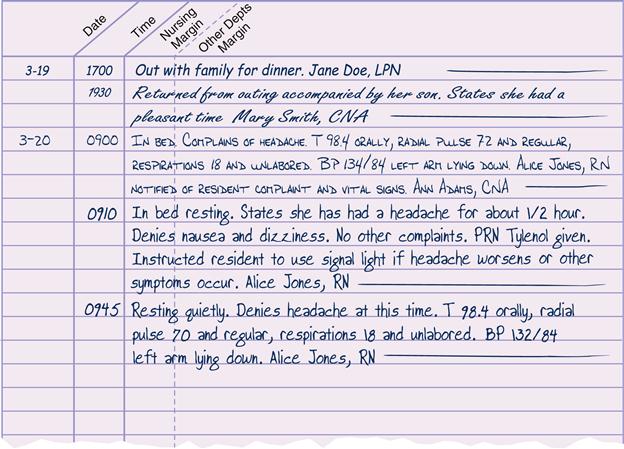 Date Time Nursing Margin Other Depts Margin
3-19 1700 Out with family for dinner. Jane Doe, LPN
1930 Returned from outing accompanied by her son. States she had a
pleasant time Mary Smith, CNA
3-20 0900 IN BED. COMPLAINS OF HEADACHE. T 98.4 ORALLY, RADIAL PULSE 72 AND REGULAR,
RESPIRATIONS 18 AND UNLABORED. BP 134/84 LEFT ARM LYING DOWN. ALICE JONES, RN
NOTIFIED OF RESIDENT COMPLAINT AND VITAL SIGNS. ANN ADAMS, CNA
0910 In bed resting. States she has had a headache for about 1/2 hour.
Denies nausea and dizziness. No other complaints. PRN Tylenol given.
Instructed resident to use signal light if headache worsens or other
symptoms occur. Alice Jones, RN
0945 Resting quietly. Denies headache at this time. T 98.4 orally, radial
pulse 70 and regular, respirations 18 and unlabored. BP 132/84
left arm lying down. Alice Jones, RN